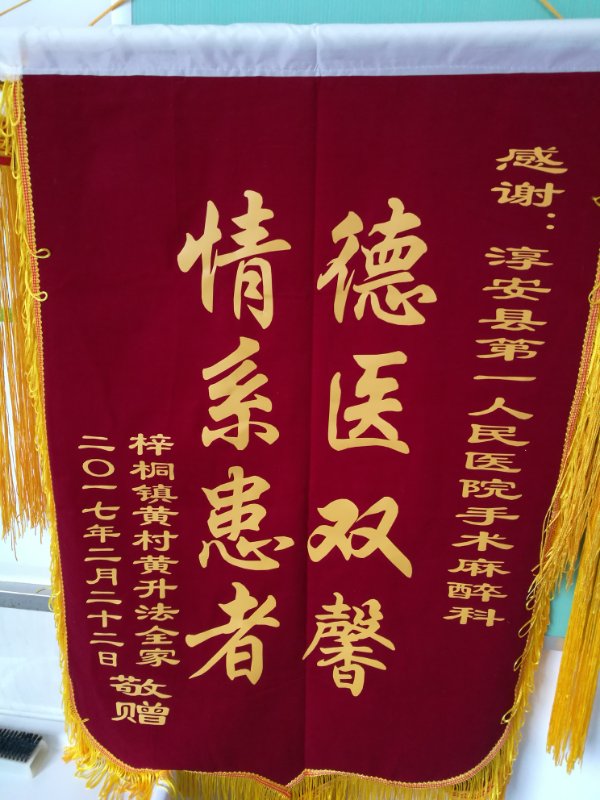 感谢：淳安县第一人民医院手术麻醉科
德医双馨
情系患者
梓桐镇黄村黄升法全家
二〇一七年二月二十二日
敬赠